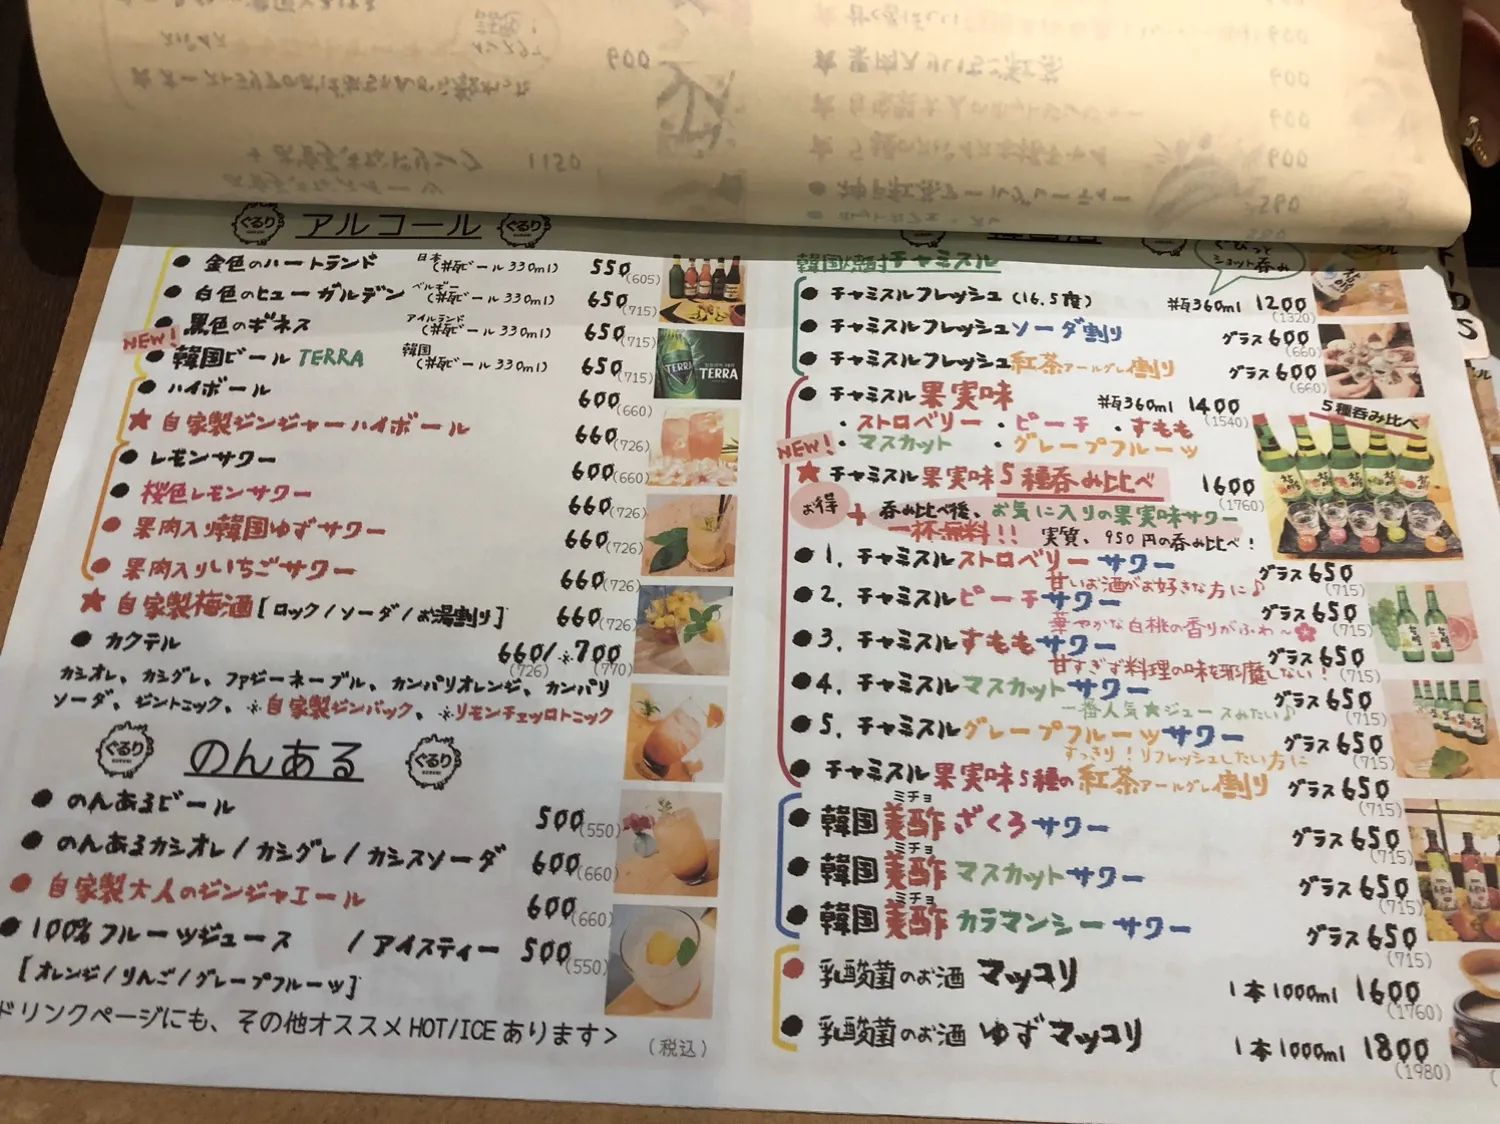 ぐるり アルコール ぐるり
● 金色のハートランド 日本(瓶ビール330ml) 550(605)
● 白色のヒューガルデン ベルギー(瓶ビール330ml) 650(715)
● 黒色のギネス アイルランド(瓶ビール330ml) 650(715)
NEW!
● 韓国ビール TERRA 韓国(瓶ビール330ml) 650(715)
● ハイボール 600(660)
★ 自家製ジンジャーハイボール 660(726)
● レモンサワー 600(660)
● 桜色レモンサワー 660(726)
● 果肉入り韓国ゆずサワー 660(726)
● 果肉入りいちごサワー 660(726)
★ 自家製梅酒[ロック/ソーダ/お湯割り] 660(726)
● カクテル 660/※700
(726) (770)
カシオレ、カシグレ、ファジーネーブル、カンパリオレンジ、カンパリ
ソーダ、ジントニック、※自家製ジンバック、※リモンチェッロトニック
TERRA TERRA
ぐるり のんある ぐるり
● のんあるビール 500(550)
● のんあるカシオレ/カシグレ/カシスソーダ 600(660)
● 自家製大人のジンジャエール 600(660)
● 100%フルーツジュース /アイスティー 500(550)
[オレンジ/りんご/グレープフルーツ]
ドリンクページにも、その他オススメHOT/ICEあります>
(税込)
韓国焼酎チャミスル
ショット呑み
● チャミスルフレッシュ(16.5度) 瓶360ml 1200
(1320)
● チャミスルフレッシュソーダ割り グラス600
(660)
● チャミスルフレッシュ紅茶アールグレイ割り グラス600
(660)
● チャミスル果実味 瓶360ml 1400
(1540)
・ストロベリー ・ピーチ ・すもも
NEW!
・マスカット ・グレープフルーツ
5種呑み比べ
★ チャミスル果実味5種呑み比べ 1600
(1760)
お得 + 呑み比べ後、お気に入りの果実味サワー
一杯無料!! 実質、950円の呑み比べ!
● 1. チャミスルストロベリーサワー グラス650
甘いお酒がお好きな方に♪ (715)
● 2. チャミスルピーチサワー グラス650
華やかな白桃の香りがふわ~ (715)
● 3. チャミスルすももサワー グラス650
甘すぎず料理の味を邪魔しない! (715)
● 4. チャミスルマスカットサワー グラス650
一番人気★ジュースみたい♪ (715)
● 5. チャミスルグレープフルーツサワー グラス650
すっきり!リフレッシュしたい方に (715)
● チャミスル果実味5種の紅茶アールグレイ割り グラス650
(715)
ミチョ
● 韓国美酢ざくろサワー グラス650
(715)
ミチョ
● 韓国美酢マスカットサワー グラス650
(715)
ミチョ
● 韓国美酢カラマンシーサワー グラス650
(715)
● 乳酸菌のお酒 マッコリ 1本1000ml 1600
(1760)
● 乳酸菌のお酒 ゆずマッコリ 1本1000ml 1800
(1980)